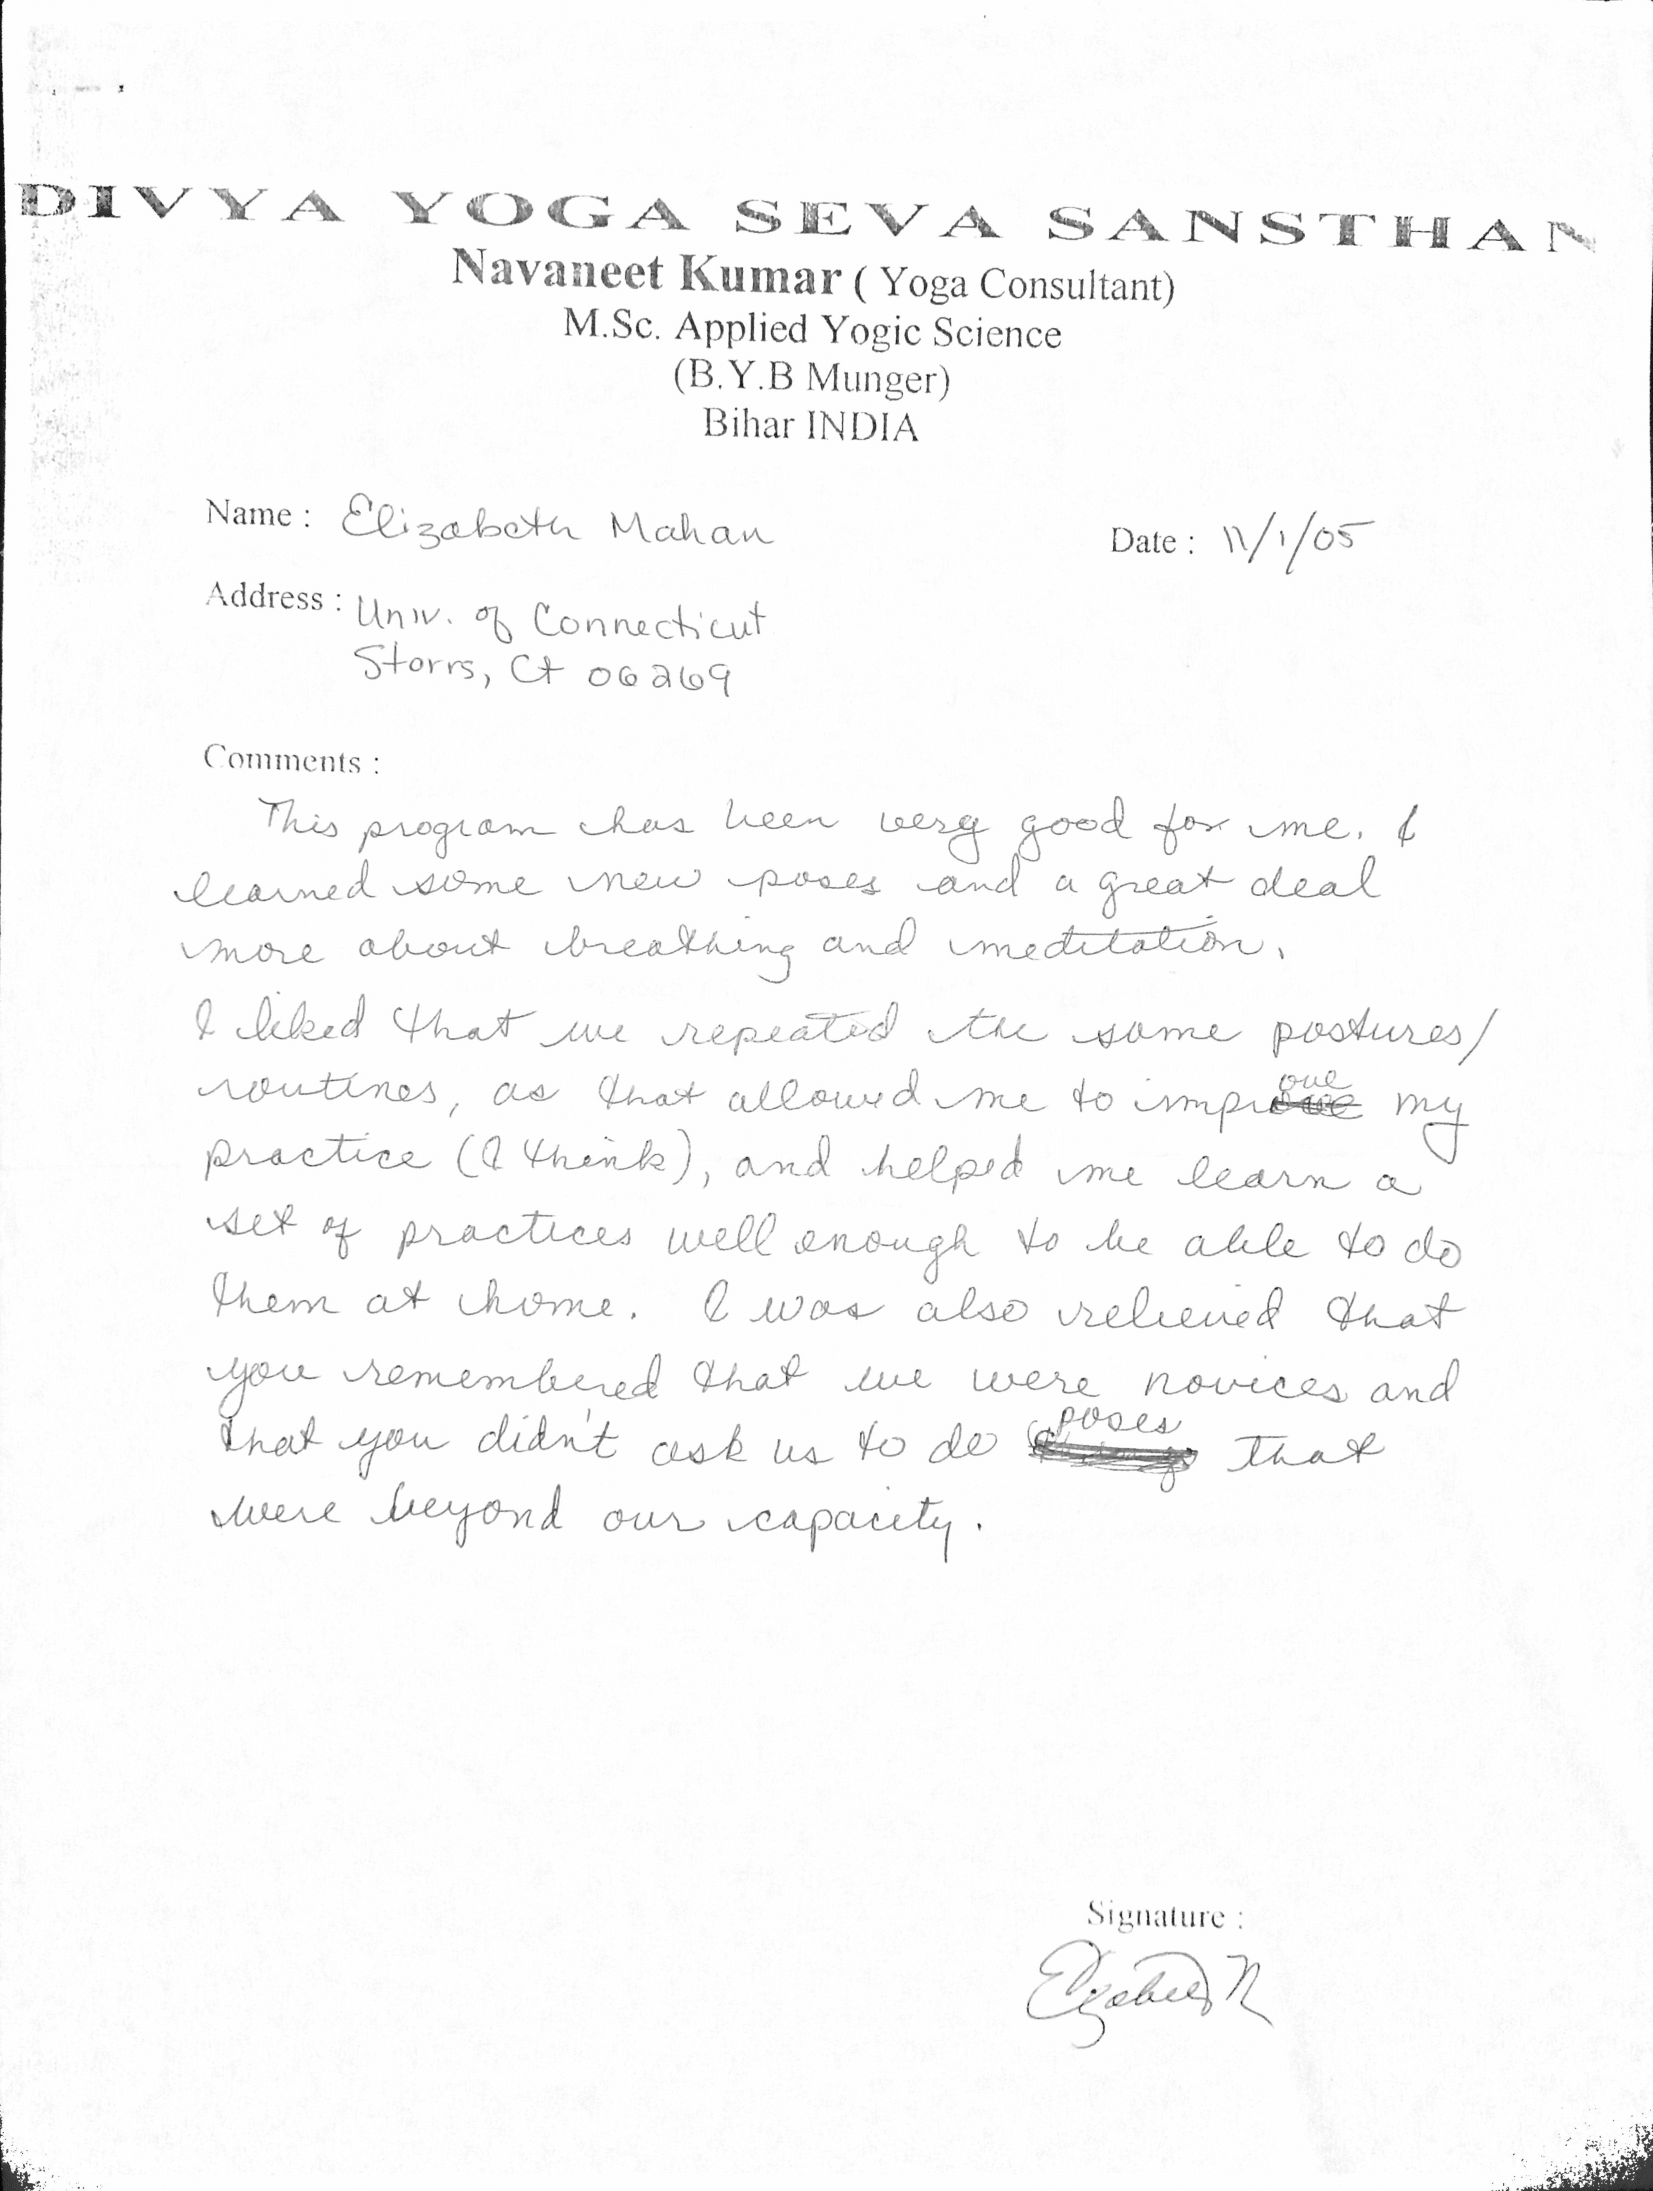 DIVYA YOGA SEVA SANSTHAN
Navaneet Kumar ( Yoga Consultant)
M.Sc. Applied Yogic Science
(B.Y.B Munger)
Bihar INDIA
Name : Elizabeth Mahan
Date : 11/1/05
Address : Univ. of Connecticut
Storrs, Ct 06269
Comments :
This program has been very good for me. I
learned some new poses and a great deal
more about breathing and meditation.
I liked that we repeated the same postures/
routines, as that allowed me to improve my
practice (I think), and helped me learn a
set of practices well enough to be able to do
them at home. I was also relieved that
you remembered that we were novices and
that you didn't ask us to do poses that
were beyond our capacity.
Signature :
Elizabeth M